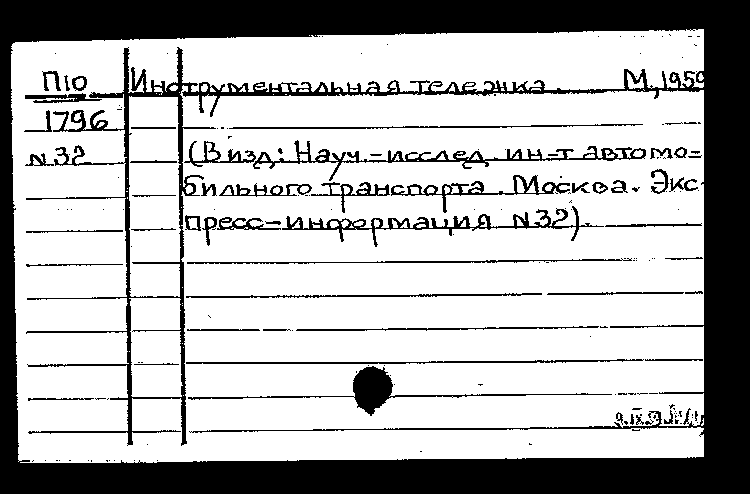 П10 Инструментальная тележка. М., 1959
1796
N32 (В изд.: Науч.-исслед. ин-т автомо-
бильного транспорта. Москва. Экс-
пресс-информация N32).
9.IX.59